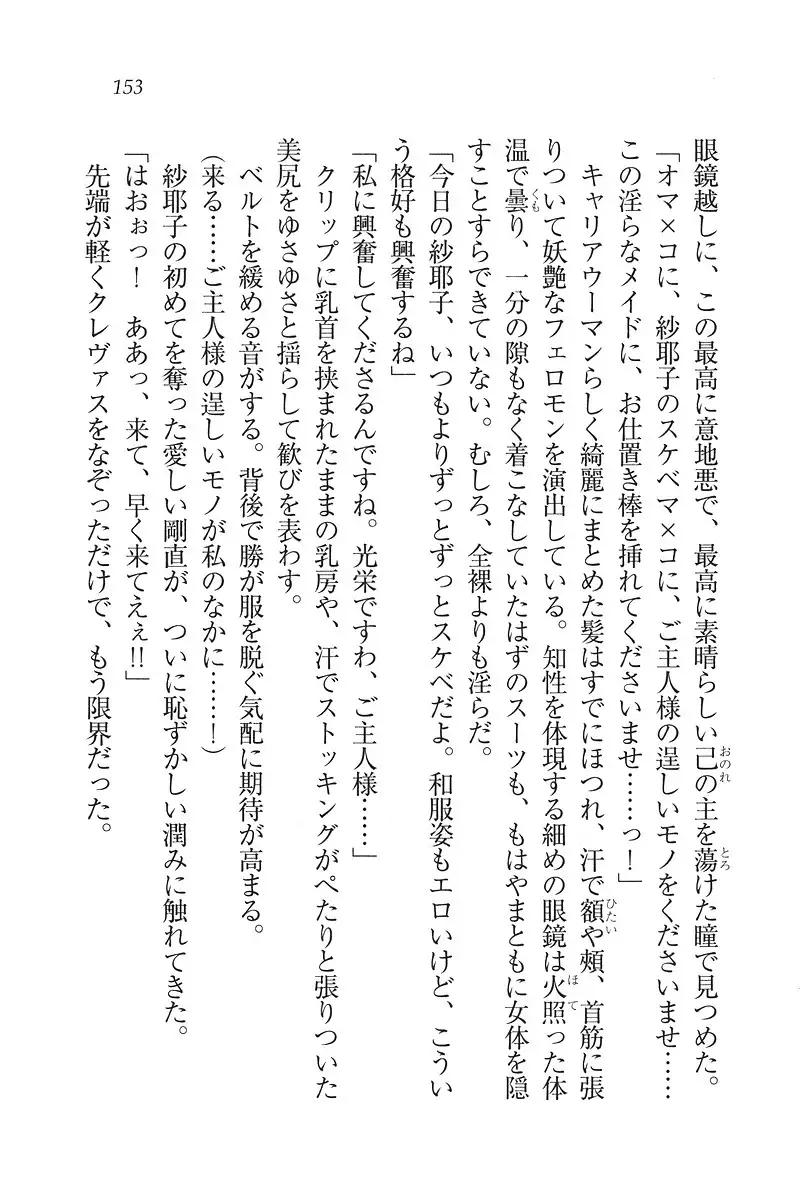 153
眼鏡越しに、この最高に意地悪で、最高に素晴らしい己の主を蕩けた瞳で見つめた。
「オマ×コに、紗耶子のスケベマ×コに、ご主人様の逞しいモノをくださいませ……
この淫らなメイドに、お仕置き棒を挿れてくださいませ……っ！」
キャリアウーマンらしく綺麗にまとめた髪はすでにほつれ、汗で額や頰、首筋に張
りついて妖艶なフェロモンを演出している。知性を体現する細めの眼鏡は火照った体
温で曇り、一分の隙もなく着こなしていたはずのスーツも、もはやまともに女体を隠
すことすらできていない。むしろ、全裸よりも淫らだ。
「今日の紗耶子、いつもよりずっとずっとスケベだよ。和服姿もエロいけど、こうい
う格好も興奮するね」
「私に興奮してくださるんですね。光栄ですわ、ご主人様……」
クリップに乳首を挟まれたままの乳房や、汗でストッキングがぺたりと張りついた
美尻をゆさゆさと揺らして歓びを表わす。
ベルトを緩める音がする。背後で勝が服を脱ぐ気配に期待が高まる。
（来る……ご主人様の逞しいモノが私のなかに……！）
紗耶子の初めてを奪った愛しい剛直が、ついに恥ずかしい潤みに触れてきた。
「はおぉっ！　ああっ、来て、早く来てえぇ!!」
先端が軽くクレヴァスをなぞっただけで、もう限界だった。